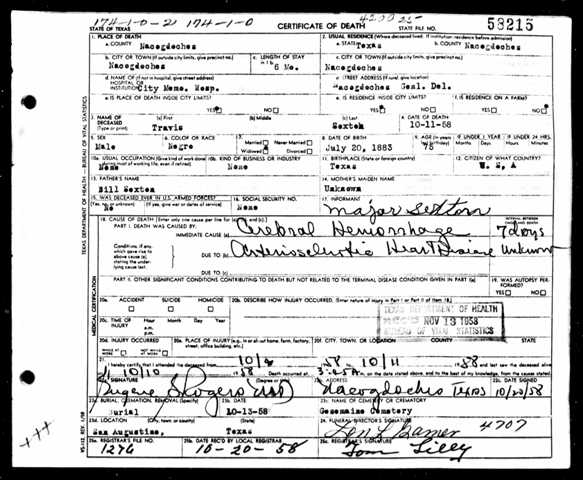 174-1-0-2 174-1-0
4200 25
STATE OF TEXAS
CERTIFICATE OF DEATH
STATE FILE NO.
53215
1. PLACE OF DEATH
a. COUNTY
Nacogdoches
2. USUAL RESIDENCE (Where deceased lived. If institution: residence before admission)
a. STATE
Texas
b. COUNTY
Nacogdoches
b. CITY OR TOWN (If outside city limits, give precinct no.)
Nacogdoches
c. LENGTH OF STAY in 1b
6 Mo.
c. CITY OR TOWN (If outside city limits, give precinct no.)
Nacogdoches
d. NAME OF (If not in hospital, give street address)
HOSPITAL OR
INSTITUTION
City Memo. Hosp.
d. STREET ADDRESS (If rural, give location)
Nacogdoches Genl. Del.
e. IS PLACE OF DEATH INSIDE CITY LIMITS?
YES NO
e. IS RESIDENCE INSIDE CITY LIMITS?
YES NO
f. IS RESIDENCE ON A FARM?
YES NO
3. NAME OF DECEASED
(Type or print)
(a) First
Travis
(b) Middle
(c) Last
Sexton
4. DATE OF DEATH
10-11-58
5. SEX
Male
6. COLOR OR RACE
Negro
7. Married Never Married
Widowed Divorced
8. DATE OF BIRTH
July 20, 1883
9. AGE
75
IF UNDER 1 YEAR
IF UNDER 24 HRS.
10a. USUAL OCCUPATION (Give kind of work done
None
10b. KIND OF BUSINESS OR INDUSTRY
None
11. BIRTHPLACE (State or foreign country)
Texas
12. CITIZEN OF WHAT COUNTRY?
U. S. A
13. FATHER'S NAME
Bill Sexton
14. MOTHER'S MAIDEN NAME
Unknown
15. WAS DECEASED EVER IN U.S. ARMED FORCES?
No
16. SOCIAL SECURITY NO.
None
17. INFORMANT
Major Sexton
18. CAUSE OF DEATH (Enter only one cause per line for
PART I. DEATH WAS CAUSED BY:
IMMEDIATE CAUSE (a)
Cerebral Hemorrhage
7 days
Conditions, if any,
which gave rise to
above cause (a),
stating the under-
lying cause last.
DUE TO (b)
Arteriosclerotic Heart Disease Unknown
DUE TO (c)
PART II. OTHER SIGNIFICANT CONDITIONS CONTRIBUTING TO DEATH BUT NOT RELATED TO THE TERMINAL DISEASE CONDITION GIVEN IN PART I(a)
19. WAS AUTOPSY PERFORMED?
YES NO
20a. ACCIDENT SUICIDE HOMICIDE
20b. DESCRIBE HOW INJURY OCCURRED. (Enter nature of injury in Part I or Part II of item 18.)
20c. TIME OF INJURY
Hour Month Day Year
a.m.
p.m.
TEXAS DEPARTMENT OF HEALTH
NOV 13 1958
BUREAU OF VITAL STATISTICS
20d. INJURY OCCURRED
20e. PLACE OF INJURY (e.g. in or about home, farm, factory, street, office building, etc.)
20f. CITY, TOWN, OR LOCATION
COUNTY
STATE
21. I hereby certify that I attended the deceased from
58
10/11
58
10/10
58
Death occurred at
on the date stated above, and to the best of my knowledge, from the causes stated.
22a. SIGNATURE
(Degree or title)
Eugene S Rogers (MD)
22b. ADDRESS
Nacogdoches Texas
22c. DATE SIGNED
10/20/58
23a. BURIAL, CREMATION, REMOVAL (Specify)
Burial
23b. DATE
10-13-58
23c. NAME OF CEMETERY OR CREMATORY
Gesemaine Cemetary
23d. LOCATION
San Augustine, Texas
24. FUNERAL DIRECTOR'S SIGNATURE
4707
25a. REGISTRAR'S FILE NO.
1276
25b. DATE REC'D BY LOCAL REGISTRAR
10-20-58
25c. REGISTRAR'S SIGNATURE
Tom Lilly
TEXAS DEPARTMENT OF HEALTH — BUREAU OF VITAL STATISTICS
MEDICAL CERTIFICATION